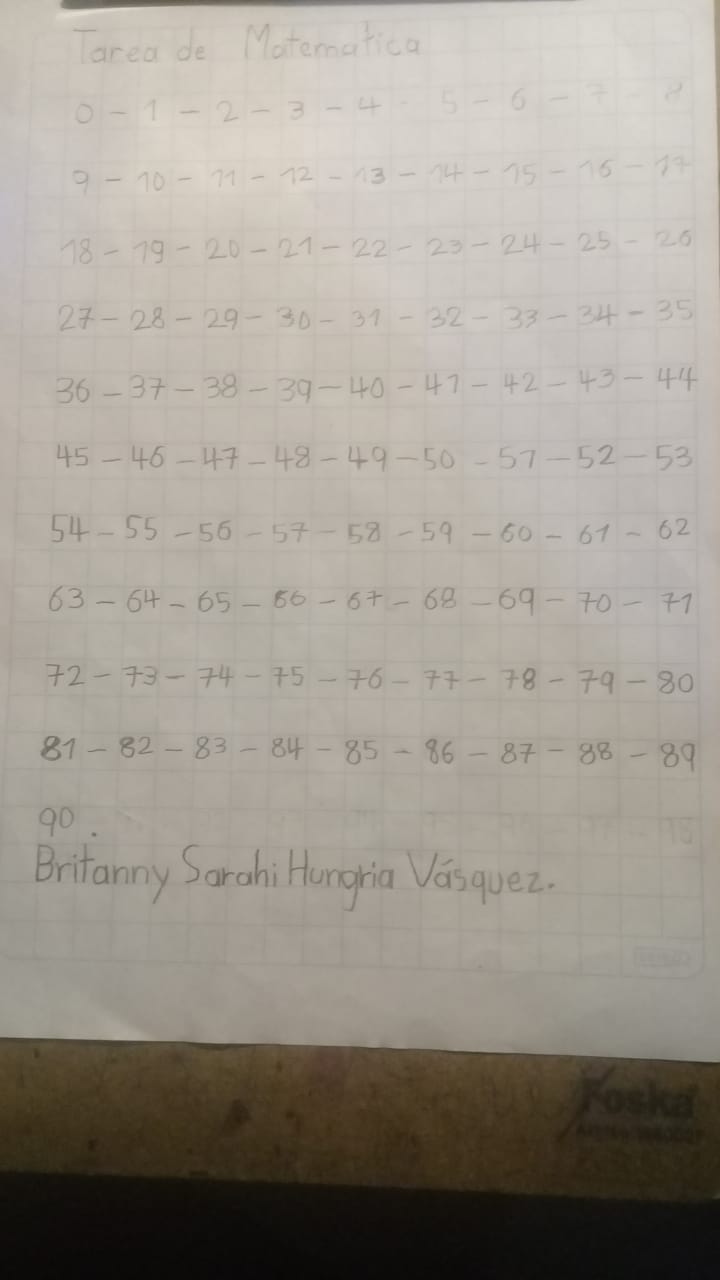 Tarea de Matematica
0 - 1 - 2 - 3 - 4 - 5 - 6 - 7 - 8
9 - 10 - 11 - 12 - 13 - 14 - 15 - 16 - 17
18 - 19 - 20 - 21 - 22 - 23 - 24 - 25 - 26
27 - 28 - 29 - 30 - 31 - 32 - 33 - 34 - 35
36 - 37 - 38 - 39 - 40 - 41 - 42 - 43 - 44
45 - 46 - 47 - 48 - 49 - 50 - 51 - 52 - 53
54 - 55 - 56 - 57 - 58 - 59 - 60 - 61 - 62
63 - 64 - 65 - 66 - 67 - 68 - 69 - 70 - 71
72 - 73 - 74 - 75 - 76 - 77 - 78 - 79 - 80
81 - 82 - 83 - 84 - 85 - 86 - 87 - 88 - 89
90.
Britanny Sarahi Hungria Vásquez.
Foska